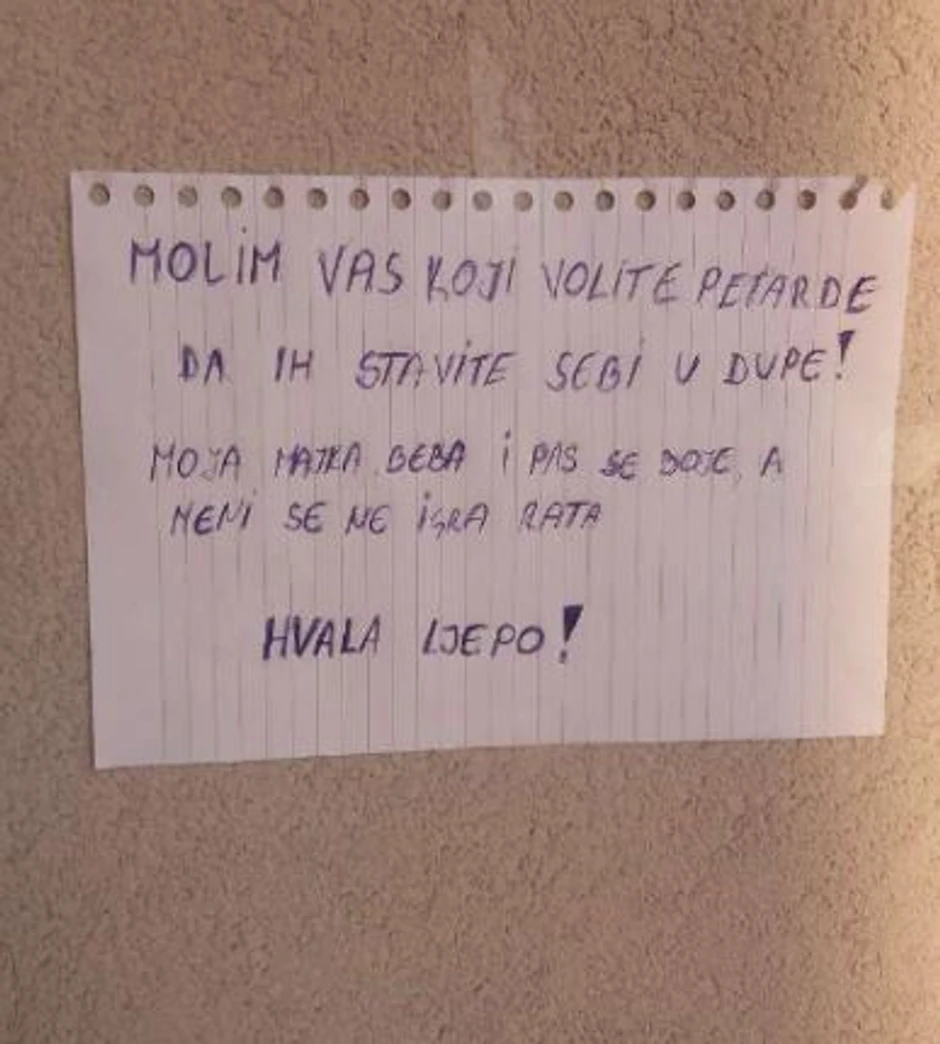 MOLIM VAS KOJI VOLITE PETARDE
DA IH STAVITE SEBI U DUPE!
MOJA MAJKA BEBA I PAS SE BOJE, A
MENI SE NE IGRA RATA
HVALA LJEPO!